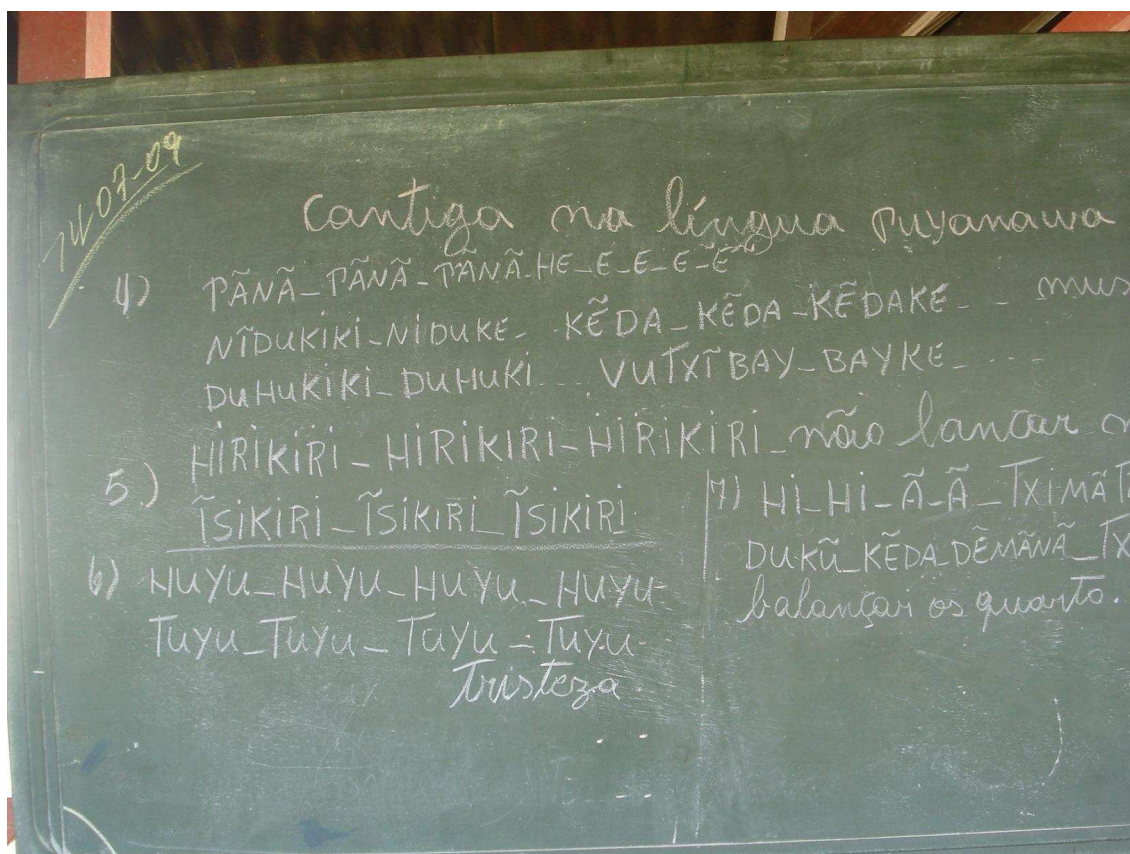 14/07-09
Cantiga na língua Puyanawa
4) PÃNÃ_PÃNÃ_PÃNÃ.HE_E_E_E_Ẽ
NĨDUKIKI_NIDUKE_ KẼDA_KẼDA_KẼDAKE_ .. mus
DUHUKIKI_DUHUKI... VUTXĨBAY_BAYKE_....
5) HIRIKIRI_HIRIKIRI_HIRIKIRI_não lançar
ĨSIKIRI_ĨSIKIRI_ĨSIKIRI.
6) HUYU_HUYU_HUYU_HUYU-
TUYU_TUYU_TUYU_TUYU.
Tristeza
7) HI_HI_Ã_Ã_TXIMÃ
DUKŨ_KẼDA_DẼMÃNÃ_TX
balançar os quarto.